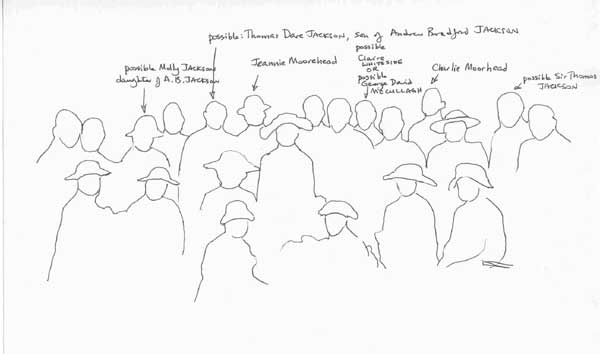 possible: Thomas Dare JACKSON, son of Andrew Bradford JACKSON
possible Molly JACKSON
daughter of A.B. JACKSON
Jeannie Moorehead
possible
Claire
WHITESIDE
OR
possible
George David
McCULLAGH
Charlie Moorhead
possible Sir Thomas
JACKSON